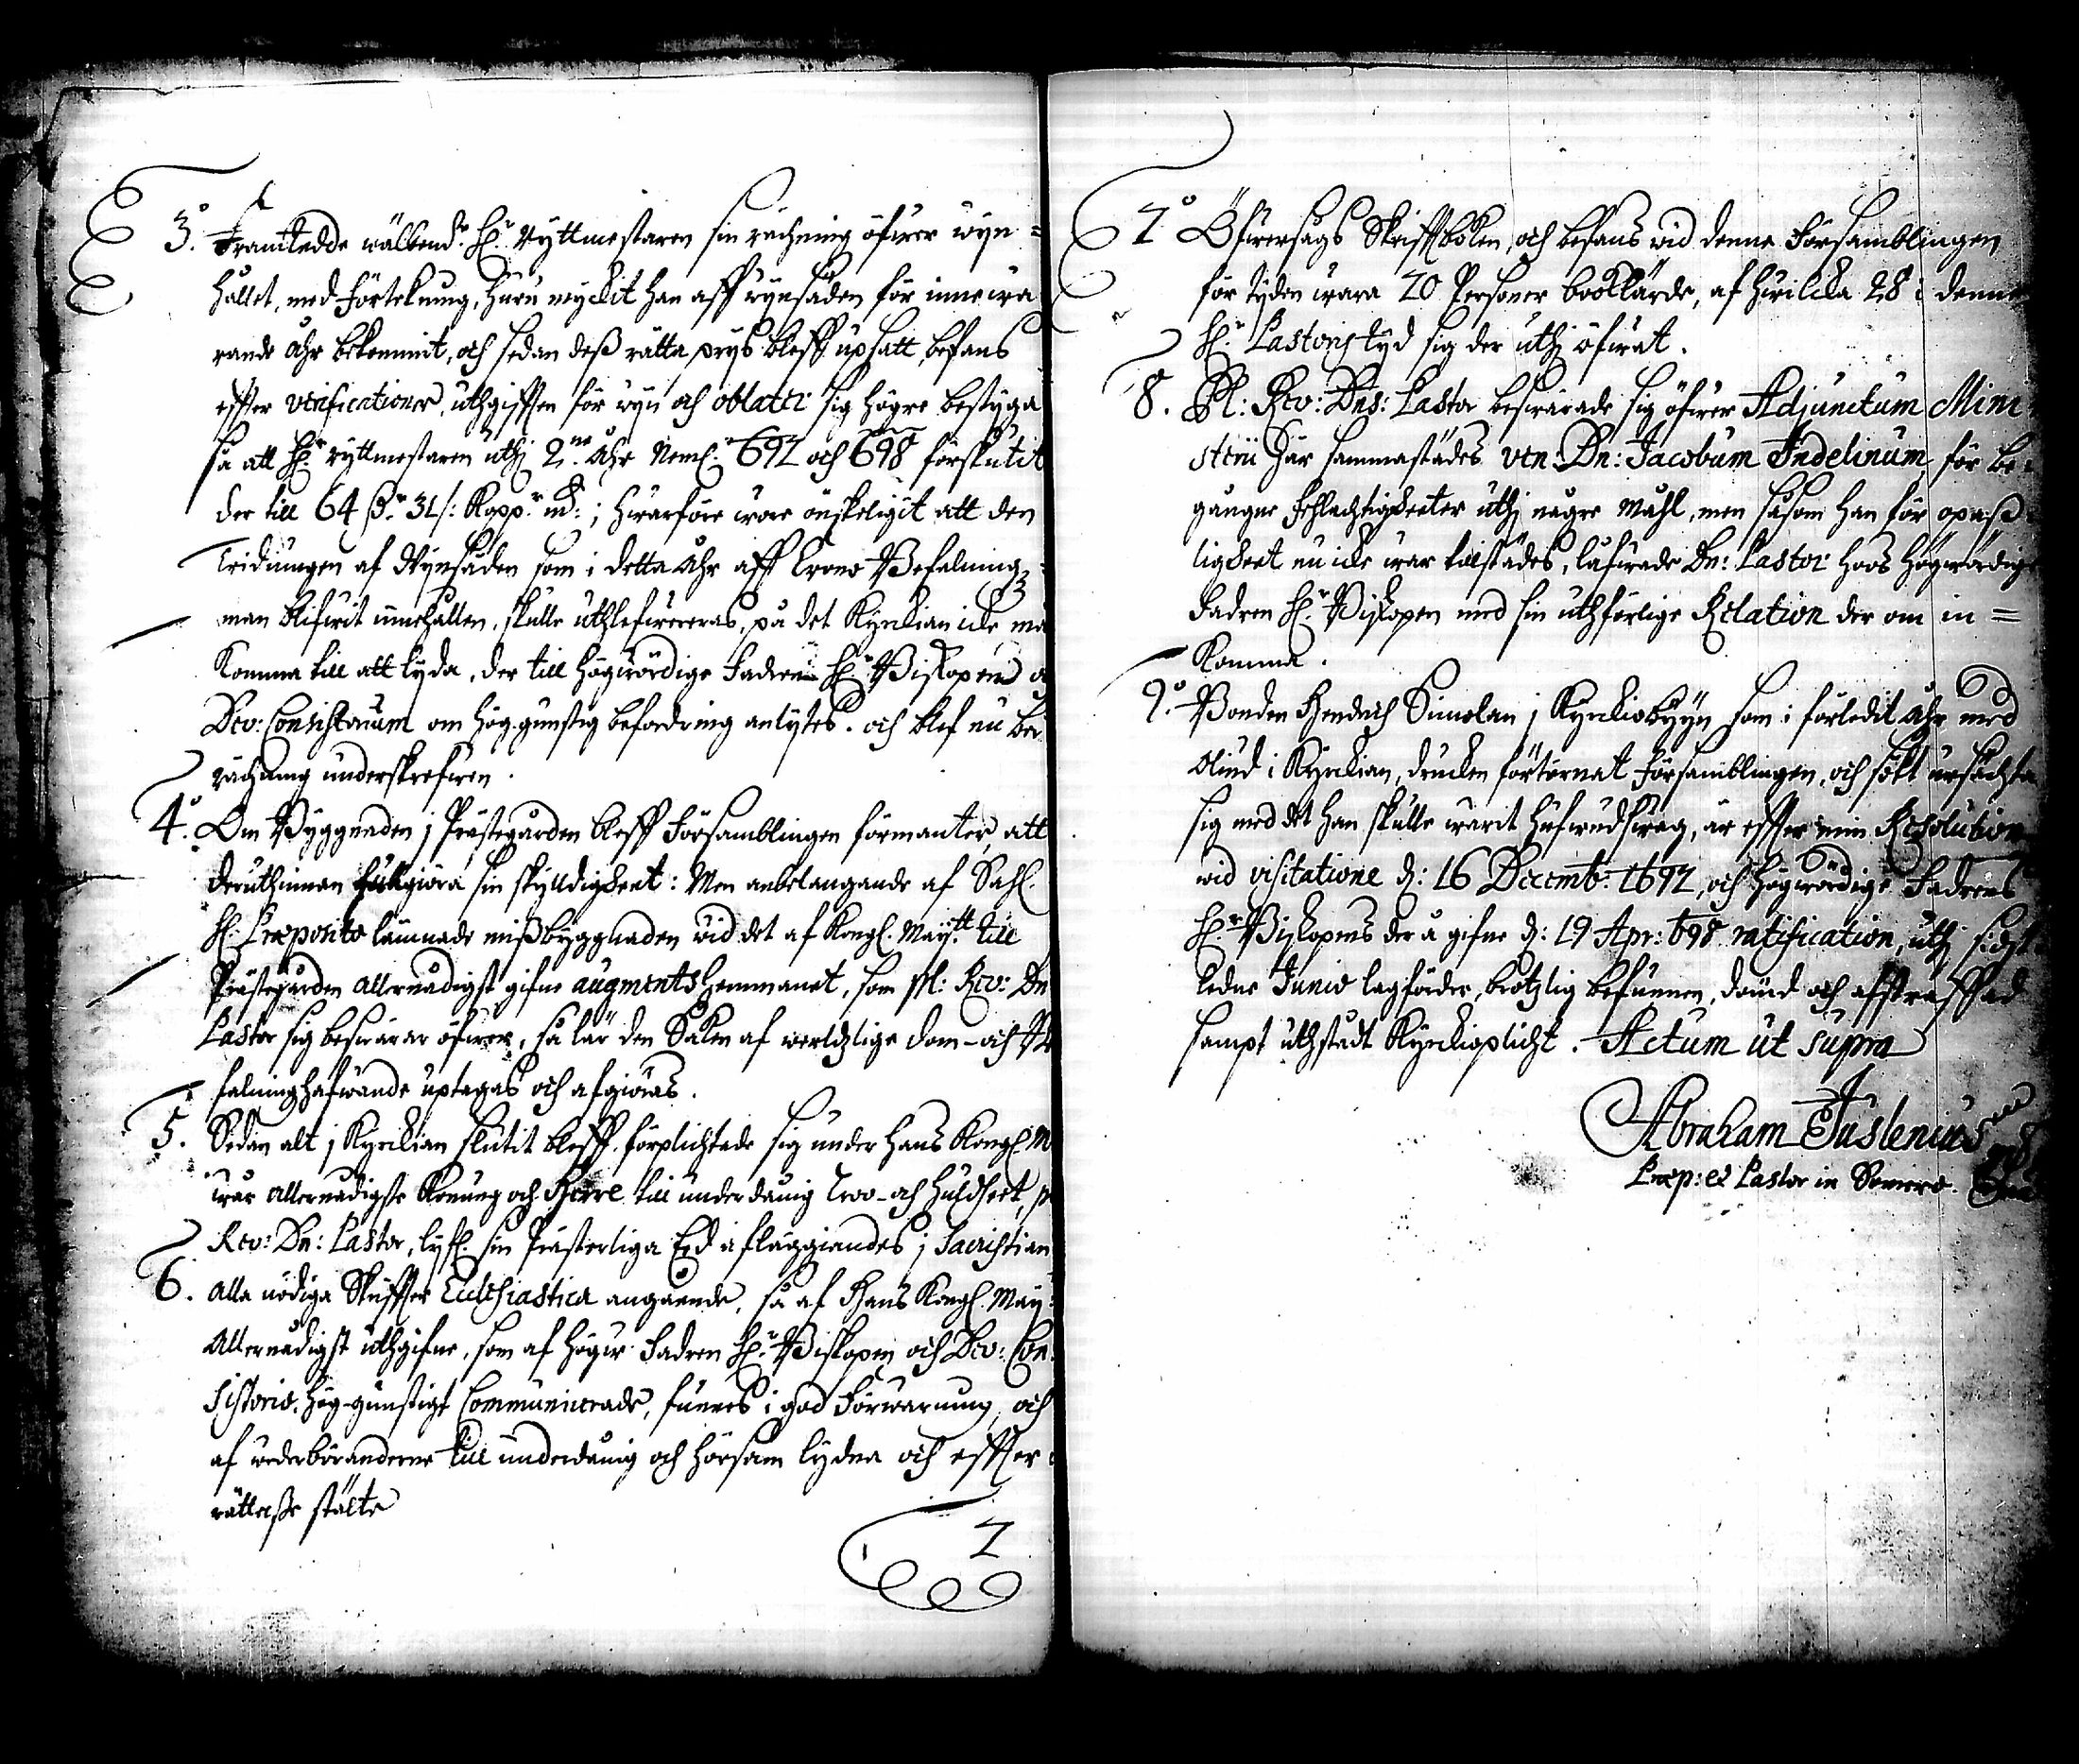 3.º Framtedde wälbend:e H:r Ryttmestaren sin rächning öfwer wyn=
hållet, med förtekning, huru myckit han aff wynsäden för innewa
rande åhr bekommit, och sedan dess rätta prys bleff upsatt, befans
effter verificationer, uthgifften för wyn och oblater sig högre bestyga
så att H:r ryttmestaren uthj 2:ne åhr Neml: 697 och 698 förskutit
der till 64 dr 31/: Kopp:r m:t; hwarföre wore önskeligit att den
tridiungen af Wynsäden som i detta åhr aff Crono Befalnings
man blifwit innehållen, skulle uthlefwereras, på det Kyrckian icke må
komma till att lyda, der till högwördige Fadren H:r Biskopens o
Rev: Consistorium om hög-gunstig befordring anlytes. och blef nu be:
rächning underskrefwen.
4.º Om Byggnaden j Prästegården bleff Församblingen förmanter, att
deruthinnan fullgiöra sin skylldigheet: Men anbelangande af Sahl.
H: Præposito lämnade missbyggnaden wid det af Kongl. May:tt till
Prästegården allernådigst gifne augmentshemmanet, som pl: Rev: Dn
Pastor sig beswärar öfwer, så lär den Saken af werldzlige dom- och Be
falninghafwande uptagas och afgiöras.
5. Sedan alt j Kyrckian slutit bleff, förplichtade sig under Hans Kongl: M
wår allernådigste Konung och Herre till underdånig troo- och huldheet, p
Rev: Dn: Pastor, lyfl. sin Prästerliga Eed afläggiandes j Sacristian
6. Alla nödiga Skriffter Ecclesiastica angående, så af Hans Kongl. May:
Allernådigst uthgifne, som af högw: Fadren H:r Biskopen och Rev: Con
sistorio, hög-gunstigt Communicerade, funnes i god förwarning, och
af wederböranderne till underdånig och hörsam lydna och effter
rättelsse stälte
7
7º Öfwersågs Skrifftboken, och befans wid denne Församblingen
för tyden wara 70 Personer booklärde, af hwilcka 28 i denne
H:r Pastoris tyd sig der uthj öfwat.
8. Pl: Rev: Dns: Pastor beswärade sig öfwer Adjunctum Mini
sterii här sammastädes ven: Dn: Jacobum Indelinum för be=
gångne fehlachtigheeter uthj någre måhl, men såsom han för opass
ligheet nu icke war tillstädes, låfwade Dn: Pastor hoos högwördige
Fadren H:r Biskopen med sin uthförlige Relation der om in=
komma.
9.º Bonden Hendrich Simolan j Kyrckiobyyn som i förledit åhr med
oliud i Kyrckian, drucken förtörnat Församblingen, och sökt ursächta
sig med det han skulle warit hufwudswag, är effter min Resolution
wid visitatione d: 16 Decemb: 1697, och högwördige Fadrens
H:r Biskopens der å gifne d: 19 Apr: 698 ratification, uthj sidst
ledne Junio lagförder, brotzlig befunnen, dömd och afstraffad
sampt uthstådt Kyrckioplicht. Actum ut supra
Abraham Juslenius
Præp: et Pastor in Somero.